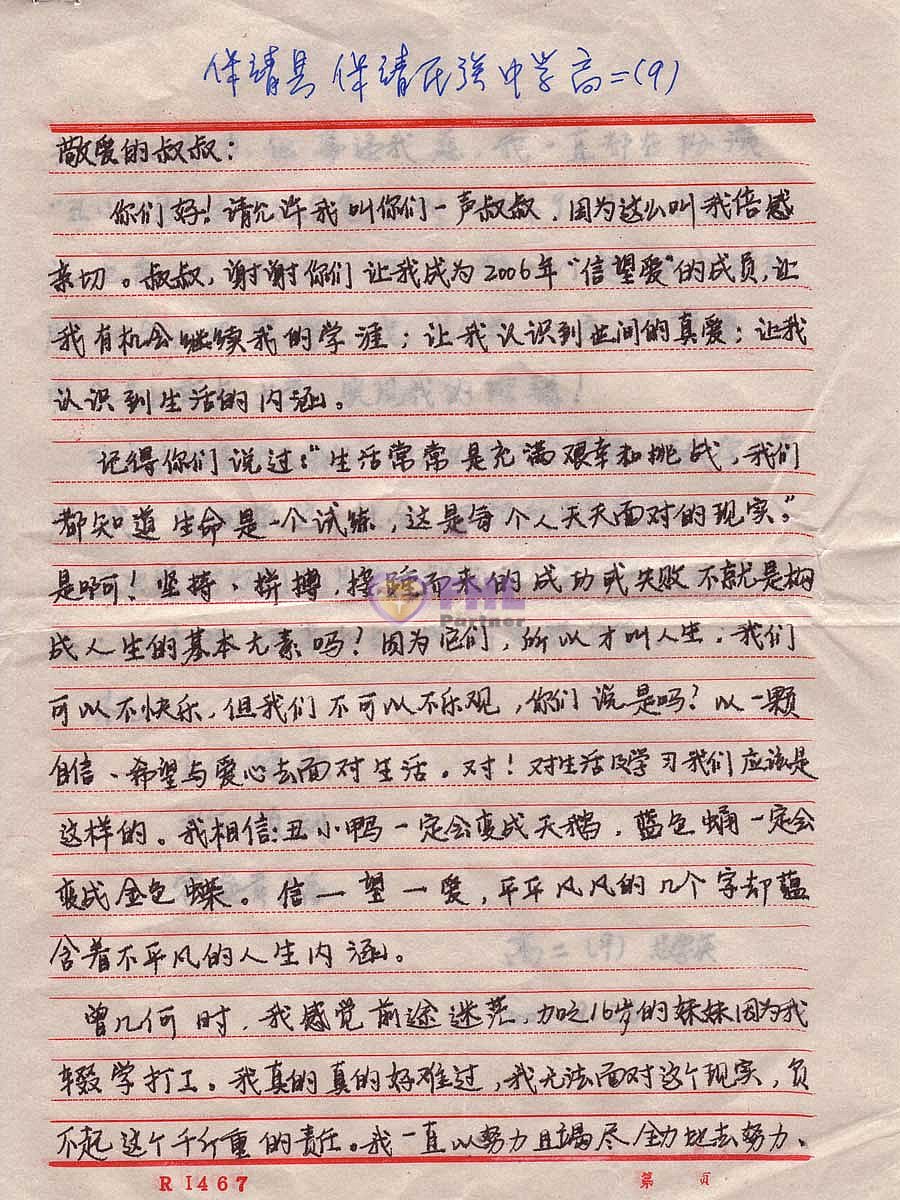 保靖县 保靖民族中学高二(9)
敬爱的叔叔：
你们好！请允许我叫你们一声叔叔，因为这么叫我倍感
亲切。叔叔，谢谢你们让我成为2006年“信望爱”的成员，让
我有机会继续我的学涯；让我认识到世间的真爱；让我
认识到生活的内涵。
记得你们说过：“生活常常是充满艰辛和挑战，我们
都知道生命是一个试练，这是每个人天天面对的现实。”
是啊！坚持、拼搏，接踵而来的成功或失败不就是构
成人生的基本元素吗？因为它们，所以才叫人生。我们
可以不快乐，但我们不可以不乐观，你们说是吗？以一颗
自信、希望与爱心去面对生活。对！对生活及学习我们应该是
这样的。我相信：丑小鸭一定会变成天鹅，蓝色蛹一定会
变成金色蝶。信一望一爱，平平凡凡的几个字却蕴
含着不平凡的人生内涵。
曾几何时，我感觉前途迷茫，加之16岁的妹妹因为我
辍学打工。我真的真的好难过，我无法面对这个现实，负
不起这个千斤重的责任。我一直以努力且竭尽全力地去努力、
R1467
第 页
FML
Partner